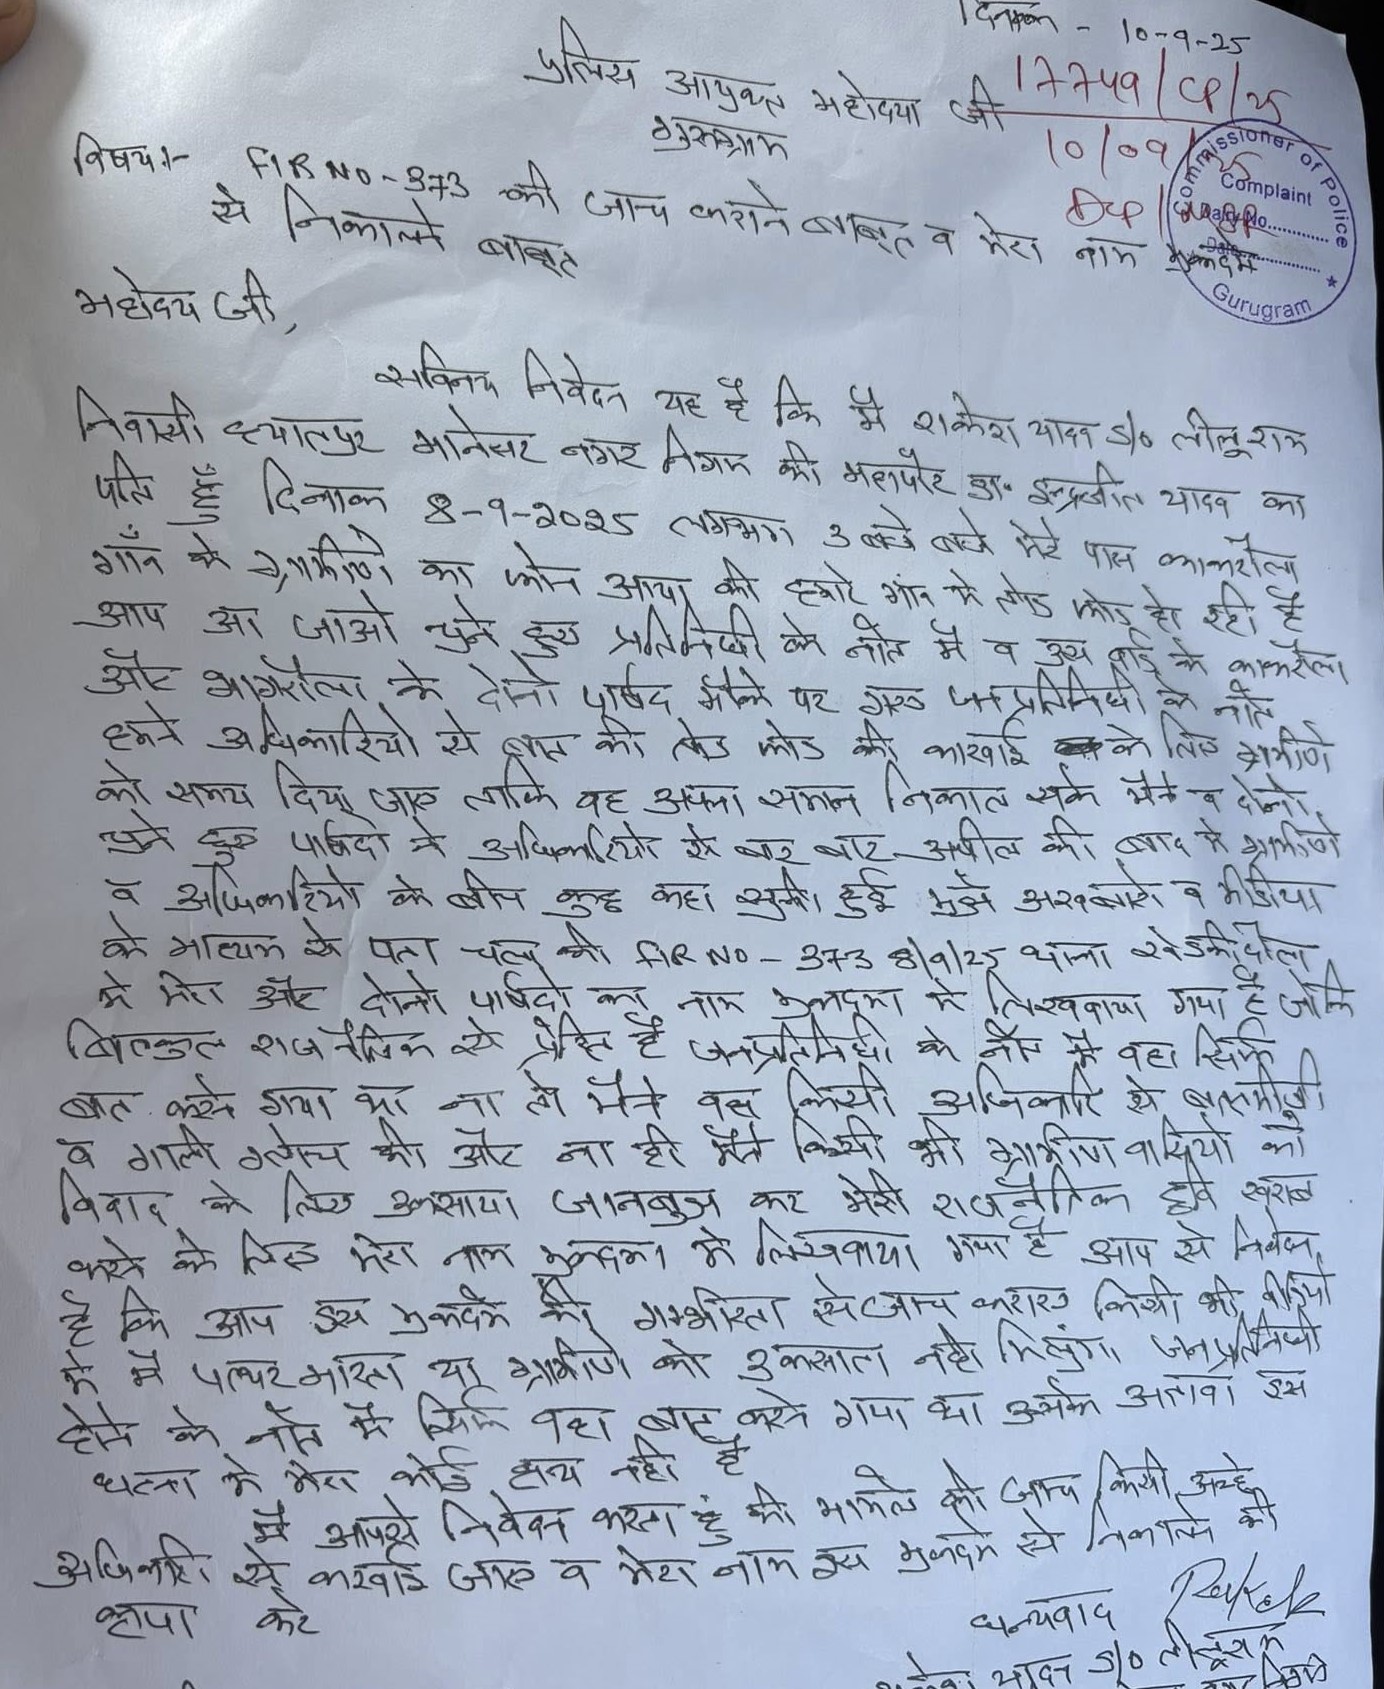 दिनांक - 10-9-25
पुलिस आयुक्त महोदया जी
गुरुग्राम
17749/CP/25
10/09/25
DCP/
Commissioner of Police
Complaint
Dairy No.............
Date.................
Gurugram
विषय:- FIR NO - 373 की जांच कराने बाबत व मेरा नाम मुकदमे
से निकालने बाबत
महोदय जी,
सविनय निवेदन यह है कि मैं राकेश यादव S/o लीलूराम
निवासी हयातपुर मानेसर नगर निगम की महापौर डा. इन्द्रजीत यादव का
पति हूँ दिनाक 8-9-2025 लगभग 3 बजे बजे मेरे पास काकरौला
गाँव के ग्रामीणो का फोन आया की हमारे गांव मे तोड फोड हो रही है
आप आ जाओ चुने हुए प्रतिनिधी के नाते मैं व उस वार्ड के काकरौला
और भागरौला के दोनो पार्षद मौके पर गए जनप्रतिनिधी के नाते
हमने अधिकारियो से बात की तोड फोड की कारवाई के लिए ग्रामीणो
को समय दिया जाए ताकि वह अपना समान निकाल सके मैंने व दोनो
चुने हुए पार्षदो ने अधिकारियो से बार बार अपील की बाद मे ग्रामीणो
व अधिकारियो के बीच कुछ कहा सुनी हुई मुझे अखबारो व मीडिया
के माध्यम से पता चला की FIR NO - 373 8/9/25 थाना खेडकीदौला
मे मेरा और दोनो पार्षदो का नाम मुकदमा मे लिखवाया गया है जोकि
बिल्कुल राजनैतिक से प्रेरित है जनप्रतिनिधी के नाते मैं वहा सिर्फ
बात करने गया था ना तो मैंने वहा किसी अधिकारी से बतमीजी
व गाली गलोच की और ना ही मैंने किसी भी ग्रामीण वासियो को
विवाद के लिए उकसाया जानबुज कर मेरी राजनैतिक छवि खराब
करने के लिए मेरा नाम मुकदमा मे लिखवाया गया है आप से निवेदन
है कि आप इस मुकदमे की गम्भीरता से जाच कराए किसी भी वीडियो
मे मैं पत्थर मारता या ग्रामीणो को उकसाता नही मिलुंगा जनप्रतिनिधी
होने के नाते मैं सिर्फ वहा बात करने गया था उसके अलावा इस
घटना मे मेरा कोई हाथ नही है
मैं आपसे निवेदन करता हुं की मामले की जांच किसी अच्छे
अधिकारी से करवाई जाए व मेरा नाम इस मुकदमे से निकालने की
कृपा करे
धन्यवाद
Rakesh
राकेश यादव S/o लीलूराम